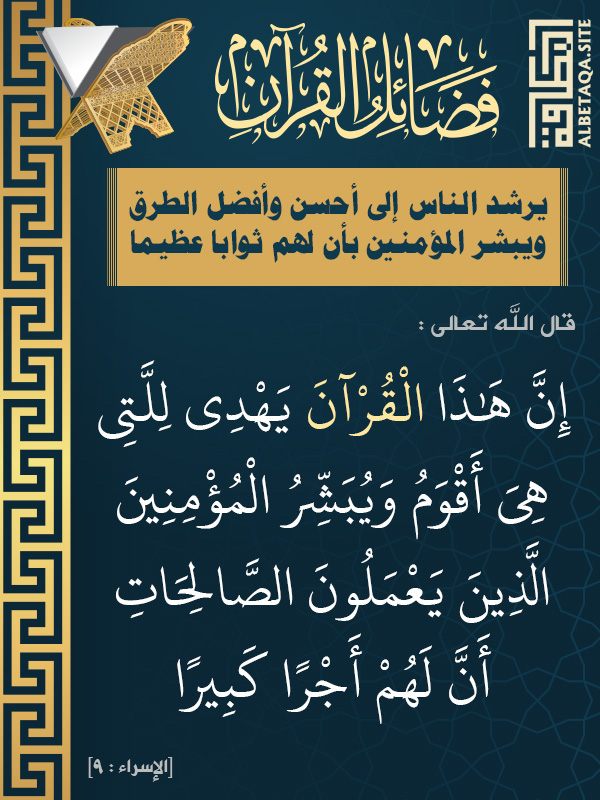 فَضَائِلُ الْقُرْآنِ
البطاقة
ALBETAQA.SITE
يرشد الناس إلى أحسن وأفضل الطرق
ويبشر المؤمنين بأن لهم ثوابا عظيما
قال اللَّه تعالى :
إِنَّ هَٰذَا الْقُرْآنَ يَهْدِى لِلَّتِى
هِىَ أَقْوَمُ وَيُبَشِّرُ الْمُؤْمِنِينَ
الَّذِينَ يَعْمَلُونَ الصَّالِحَاتِ
أَنَّ لَهُمْ أَجْرًا كَبِيرًا
[الإسراء : ٩]